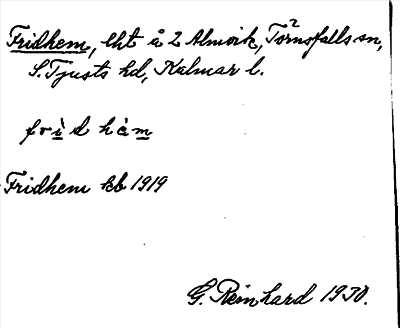 Fridhem, lht å 2 Almvik, Törnsfalls sn,
S. Tjusts hd, Kalmar l.
frìd hèm
Fridhem kb 1919
G. Reinhard 1930.